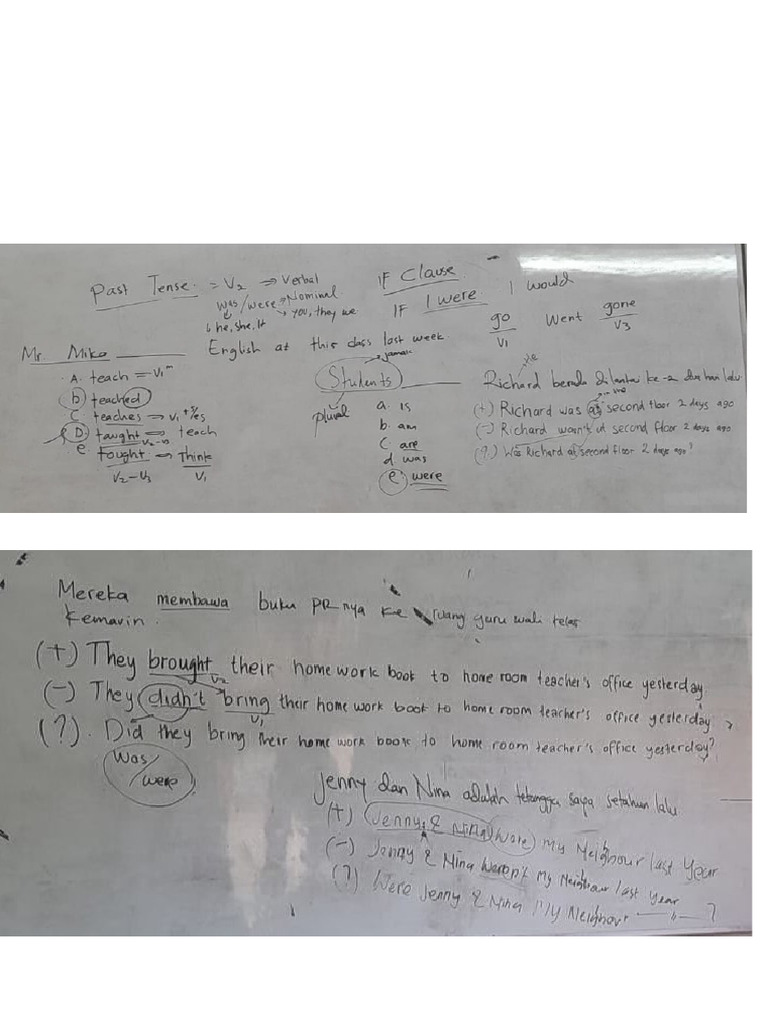 Past Tense = V2 ⇒ Verbal
was/were ⇒ Nominal
he, she, it
you, they we
IF Clause
IF I were I would
go went gone
V1 V3
Mr. Miko ______ English at this class last week.
A. teach = V1
b) teached
C. teaches ⇒ V1 + s/es
D. taught ⇒ teach
e. fought ⇒ Think
V2 - V3 V1
Students ______
jamak
plural
a. is
b. am
c. are
d. was
e. were
Richard berada di lantai ke-2 dua hari lalu
(+) Richard was at second floor 2 days ago
(-) Richard wasn't at second floor 2 days ago
(?) Was Richard at second floor 2 days ago?
Mereka membawa buku PRnya ke ruang guru wali kelas
kemarin.
(+) They brought their home work book to home room teacher's office yesterday
V2
(-) They didn't bring their home work book to home room teacher's office yesterday
V1
(?). Did they bring their home work book to home room teacher's office yesterday?
Was/were
Jenny dan Nina adalah tetangga saya setahun lalu
(+) Jenny & Nina were my Neighbour last year
(-) Jenny & Nina weren't my Neighbour last year
(?) Were Jenny & Nina My Neighbour — " — ?